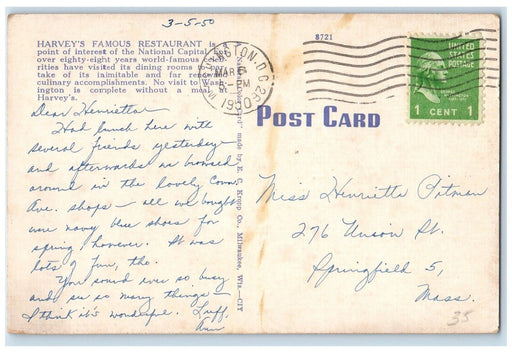 3-5-50
HARVEY'S FAMOUS RESTAURANT is a
point of interest of the National Capital. For
over eighty-eight years world-famous celeb-
rities have visited its dining rooms to par-
take of its inimitable and far renowned
culinary accomplishments. No visit to Wash-
ington is complete without a meal at
Harvey's.
Dear Henrietta—
Had lunch here with
several friends yesterday
and afterwards we browsed
around in the lovely Conn.
Ave. shops — all we bought
were navy blue shoes for
spring, however. It was
lots of fun, tho.
You sound ever so busy
and see so many things —
I think it's wonderful. Luff,
Ann
made by E. C. Kropp Co., Milwaukee, Wis.—CIY
8721
WASHINGTON, D.C.
MAR 5
PM
1950
POST CARD
UNITED
STATES
POSTAGE
1 CENT 1
Miss Henrietta Pitman
276 Union St.
Springfield 5,
Mass.
35